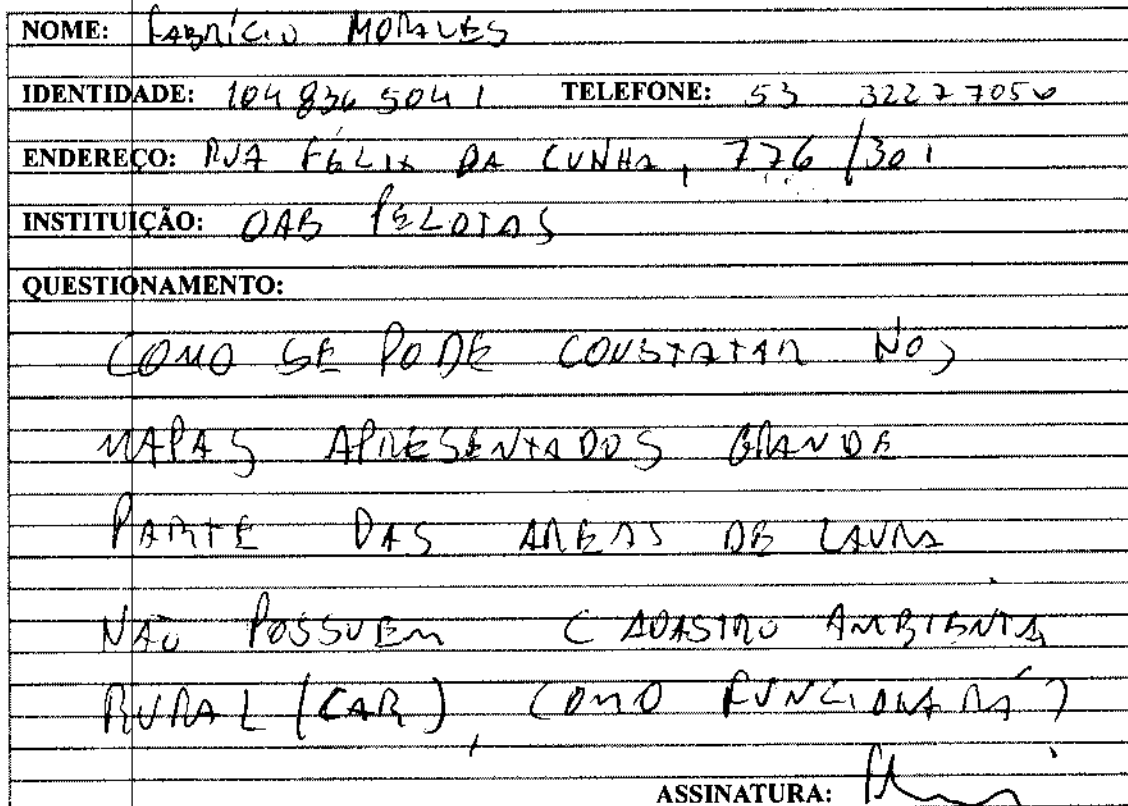 NOME: FABRÍCIO MORALES
IDENTIDADE: 104 836 504 1 TELEFONE: 53 3227 7050
ENDEREÇO: RUA FÉLIX DA CUNHA, 776/301
INSTITUIÇÃO: OAB PELOTAS
QUESTIONAMENTO:
COMO SE PODE CONSTATAR NOS
MAPAS APRESENTADOS GRANDE
PARTE DAS AREAS DE LAVRA
NÃO POSSUEM CADASTRO AMBIENTAL
RURAL (CAR), COMO FUNCIONARÁ?
ASSINATURA: